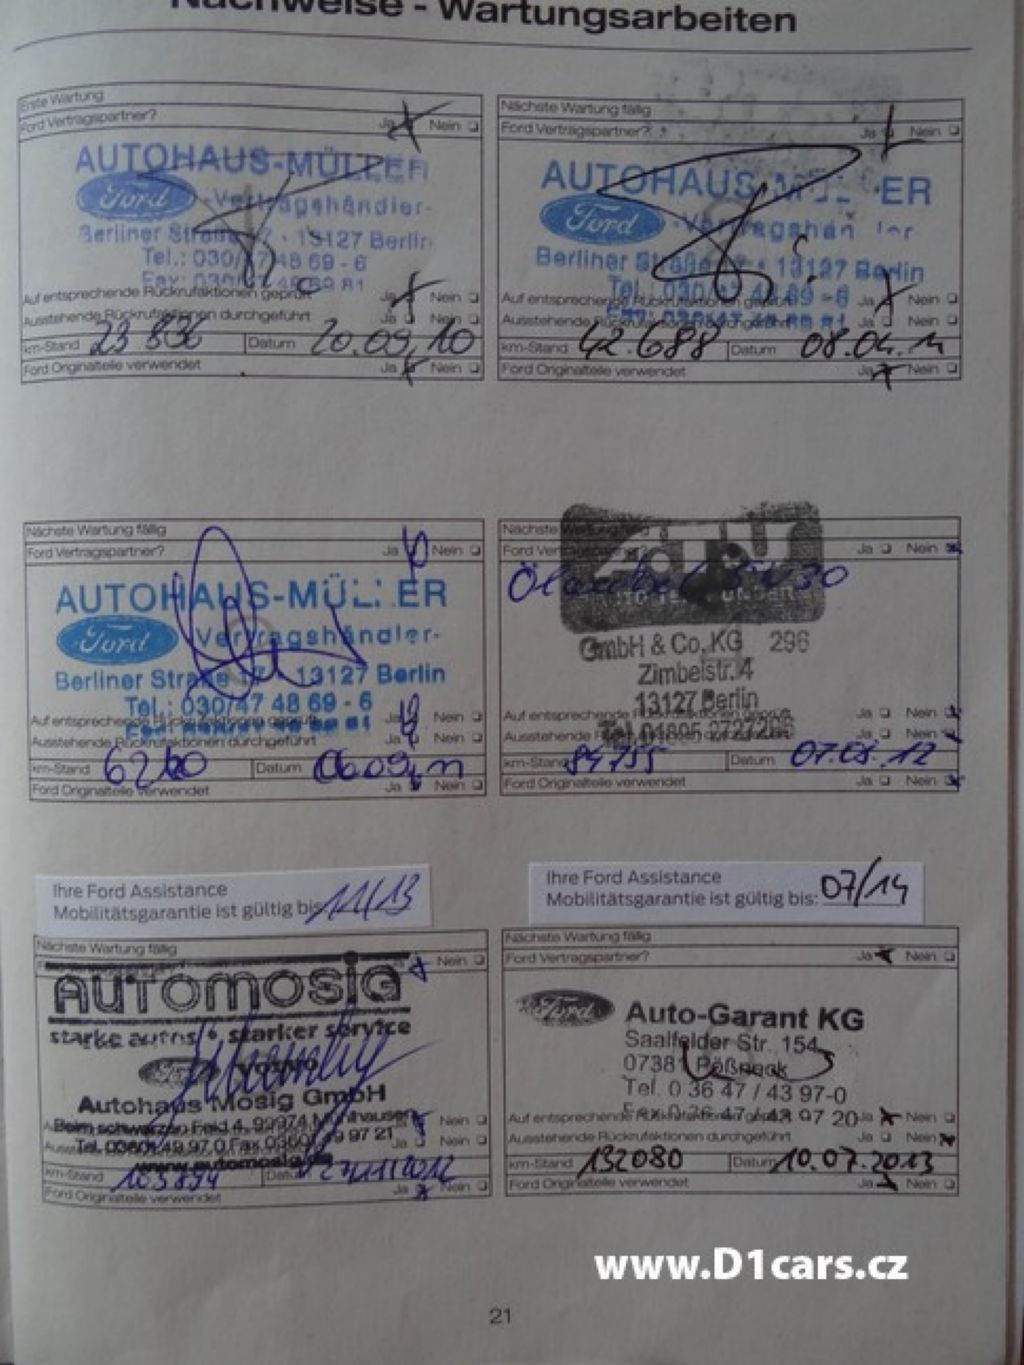 Nachweise - Wartungsarbeiten
Erste Wartung
Ford Vertragspartner? Ja Nein
AUTOHAUS-MÜLLER
Ford -Vertragshändler-
Berliner Straße 13127 Berlin
Tel.: 030/47 48 69 - 6
Auf entsprechende Rückrufaktionen geprüft Ja Nein
Ausstehende Rückrufaktionen durchgeführt Ja Nein
km-Stand 23 836 Datum 20.09.10
Ford Originalteile verwendet Ja Nein
Nächste Wartung fällig
Ford Vertragspartner? Ja Nein
AUTOHAUS-MÜLLER
Ford -Vertragshändler-
Berliner Straße 13127 Berlin
Tel.: 030/47 48 69 -6
Auf entsprechende Rückrufaktionen geprüft Ja Nein
Ausstehende Rückrufaktionen durchgeführt Ja Nein
km-Stand 42.688 Datum 08.04.11
Ford Originalteile verwendet Ja Nein
Nächste Wartung fällig
Ford Vertragspartner? Ja Nein
AUTOHAUS-MÜLLER
Ford -Vertragshändler-
Berliner Straße 17 13127 Berlin
Tel.: 030/47 48 69 - 6
Auf entsprechende Rückrufaktionen geprüft Ja Nein
Ausstehende Rückrufaktionen durchgeführt Ja Nein
km-Stand Datum 06.09.11
Ford Originalteile verwendet Ja Nein
Nächste Wartung fällig
Ford Vertragspartner? Ja Nein
GmbH & Co. KG 296
Zimbelstr. 4
13127 Berlin
Auf entsprechende Ja Nein
Ausstehende Ja Nein
km-Stand 84755 Datum
Ford Originalteile verwendet Ja Nein
Ihre Ford Assistance
Mobilitätsgarantie ist gültig bis: 11/13
Nächste Wartung fällig
Nein
AUTOMOSIG
starke autos & starker service
Ford VOLVO
Autohaus Mosig GmbH
Beim schwarzen Feld 4, 99974 Mühlhausen Nein
Tel. 03601 49 97 0 Fax 03601 49 97 21 Nein
www.automosig.de
km-Stand 103894 Datum 27.11.2012
Ford Originalteile verwendet Ja Nein
Ihre Ford Assistance
Mobilitätsgarantie ist gültig bis: 07/14
Nächste Wartung fällig
Ford Vertragspartner? Ja Nein
Ford Auto-Garant KG
Saalfelder Str. 154
07381 Pößneck
Tel. 0 36 47 / 43 97-0
Fax 0 36 47 / 43 97 20
Auf entsprechende Ja Nein
Ausstehende Rückrufaktionen durchgeführt Ja Nein
km-Stand 132080 Datum 10.07.2013
Ford Originalteile verwendet Ja Nein
www.D1cars.cz
21